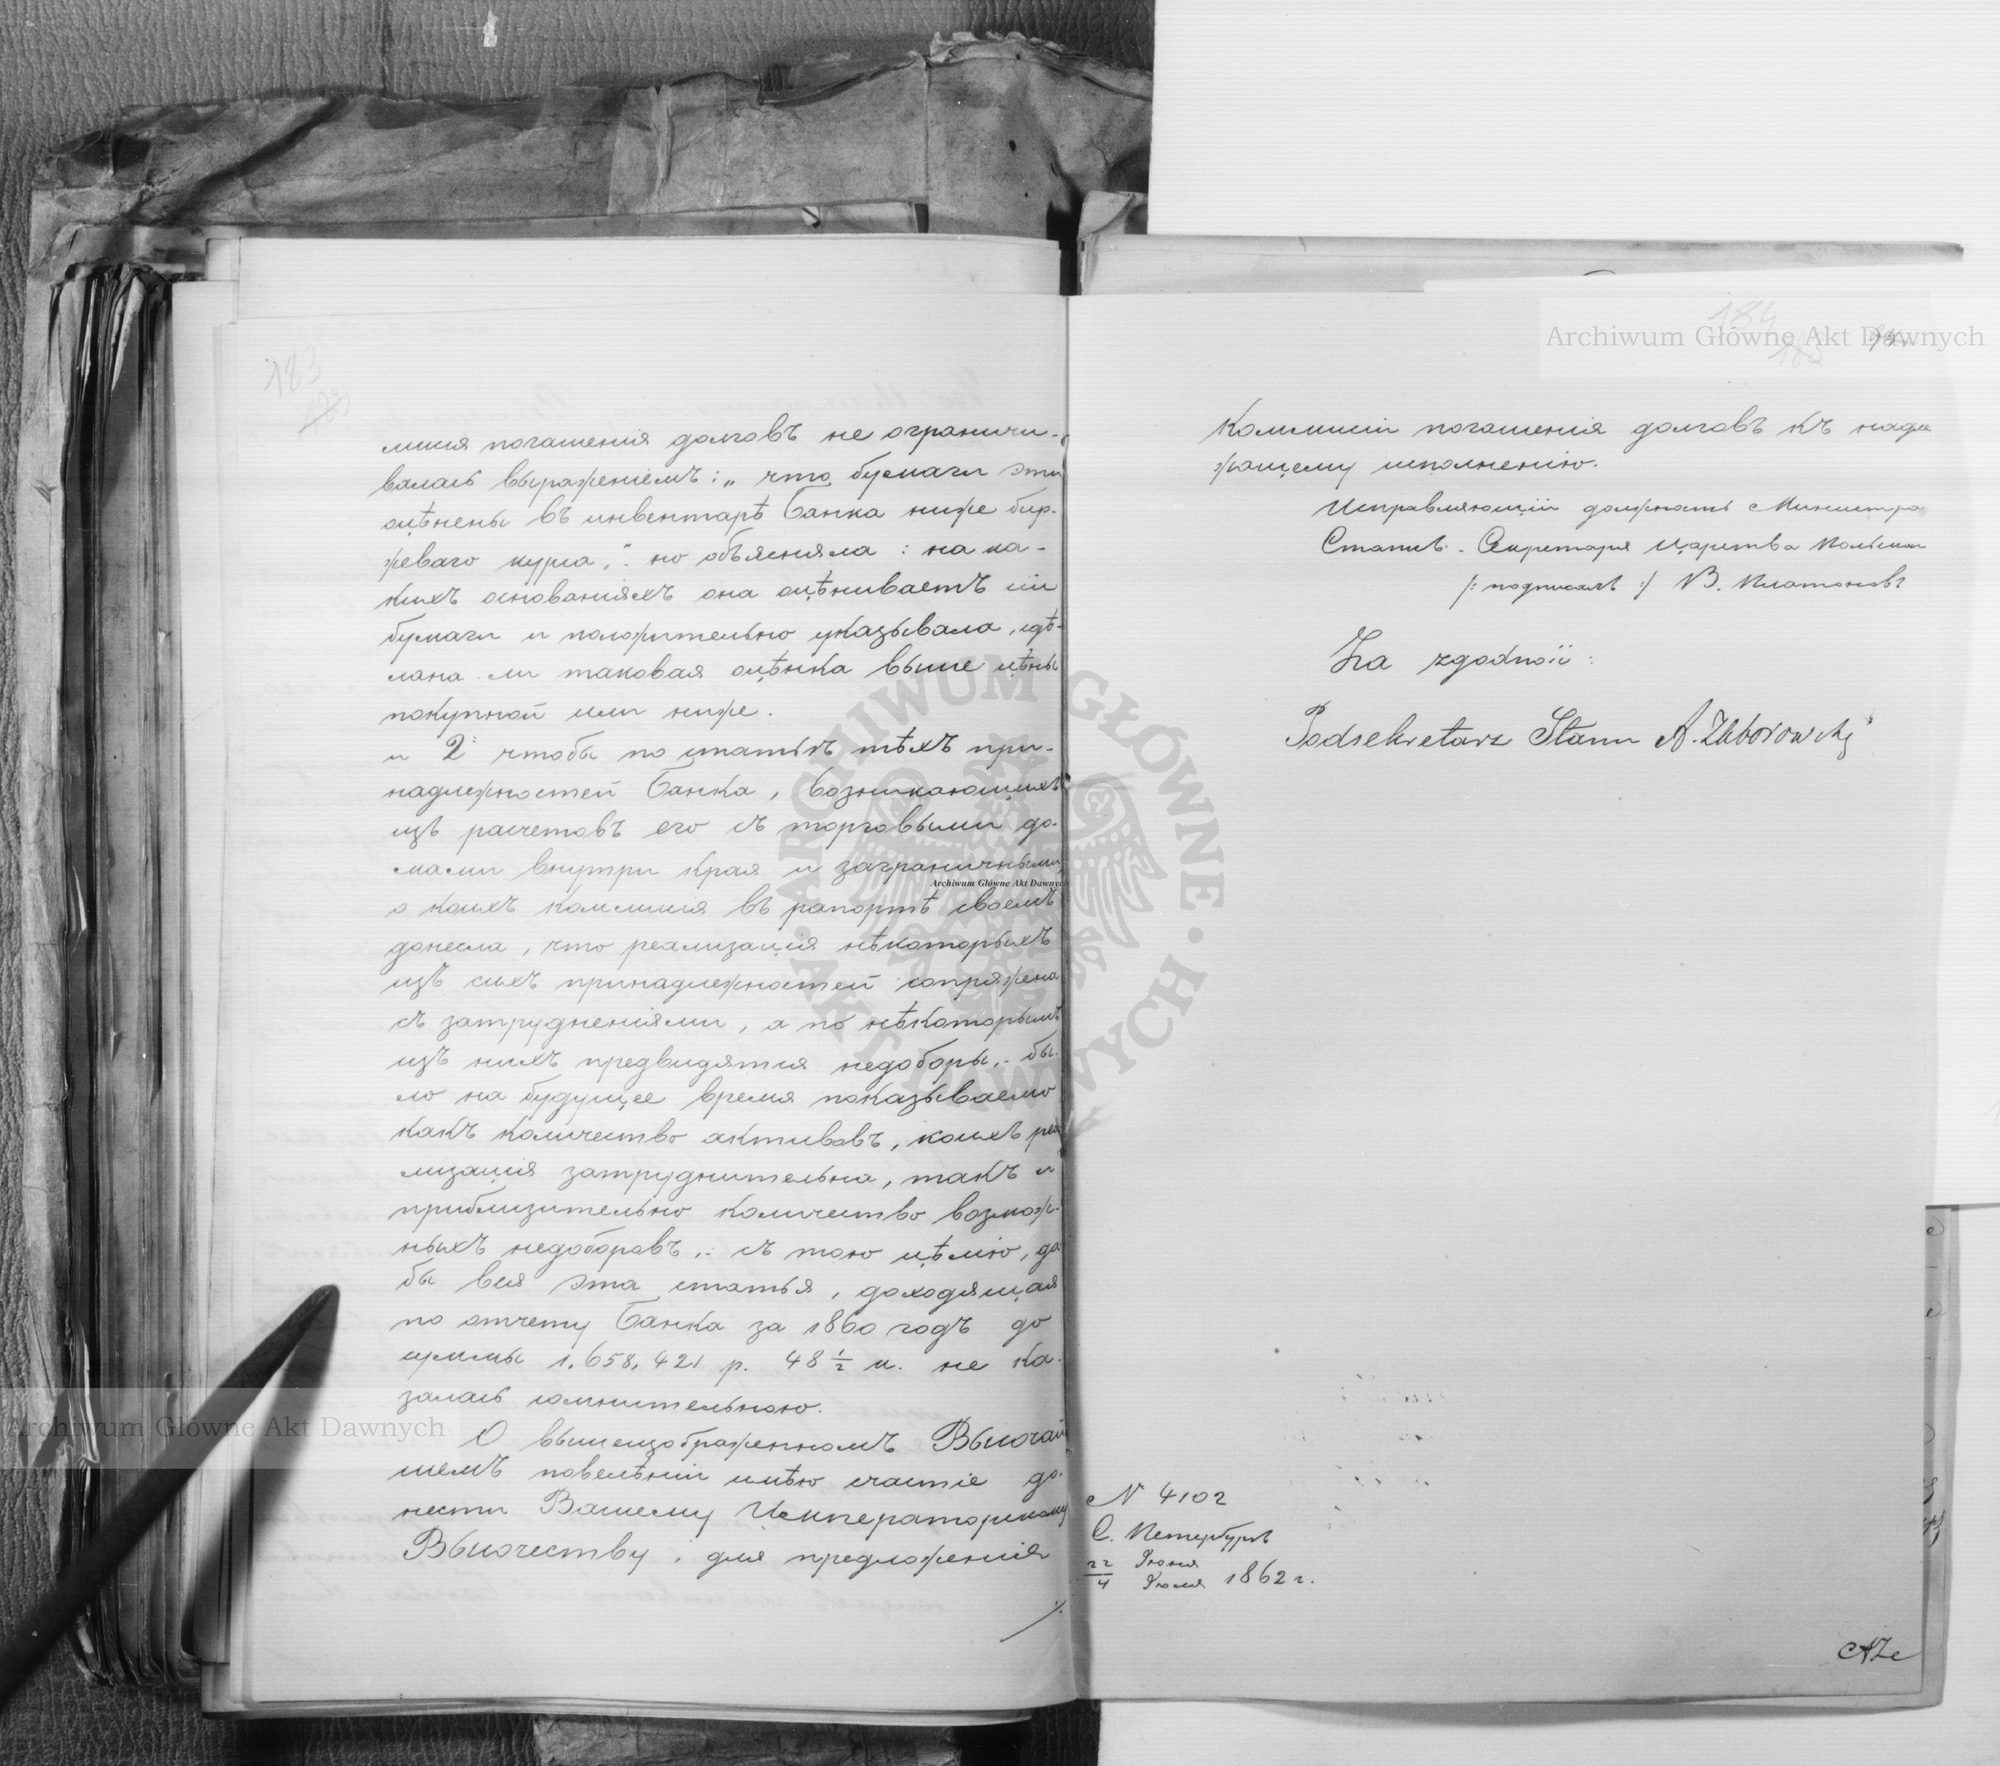 183
миссія погашенія долговъ не ограничи-
валась выраженіемъ: „что бумаги эти
оцѣнены въ инвентарѣ Банка ниже бир-
жеваго курса," но объясняла: на ка-
кихъ основаніяхъ она оцѣниваетъ сіи
бумаги и положительно указывала, сдѣ-
лана ли таковая оцѣнка выше цѣны
покупной или ниже.
и 2. чтобы по статьѣ тѣхъ при-
надлежностей Банка, возникающихъ
изъ расчетовъ его съ торговыми до-
мами внутри края и заграничными,
о коихъ коммисія въ рапортѣ своемъ
донесла, что реализація нѣкоторыхъ
изъ сихъ принадлежностей сопряжена
съ затрудненіями, а по нѣкоторымъ
изъ нихъ предвидятся недоборы,- бы-
ло на будущее время показываемо
какъ количество активовъ, коихъ реа
лизація затруднительна, такъ и
приблизительно количество возмож-
ныхъ недоборовъ,- съ тою цѣлію, да
бы вся эта статья, доходящая
по отчету Банка за 1860 годъ до
суммы 1,658,421 р. 48 1/2 к. не ка-
залась сомнительною.
О вышеизображенномъ Высочай
шемъ повелѣніи имѣю счастіе до-
нести Вашему Императорскому
Высочеству, для предложенія
./.
184
Коммисіи погашенія долговъ къ надле
жащему исполненію.
Исправляющій должность Министра
Статсъ-Секретаря Царства Польскаго
/: подписалъ :/ В. Платоновъ
Za zgodność:
Podsekretarz Stanu A. Zborowski
№ 4102
С. Петербургъ
22 Іюня
4 Іюля 1862 г.
Archiwum Główne Akt Dawnych
Archiwum Główne Akt Dawnych
Archiwum Główne Akt Dawnych
ARCHIWUM GŁÓWNE · AKT DAWNYCH ·